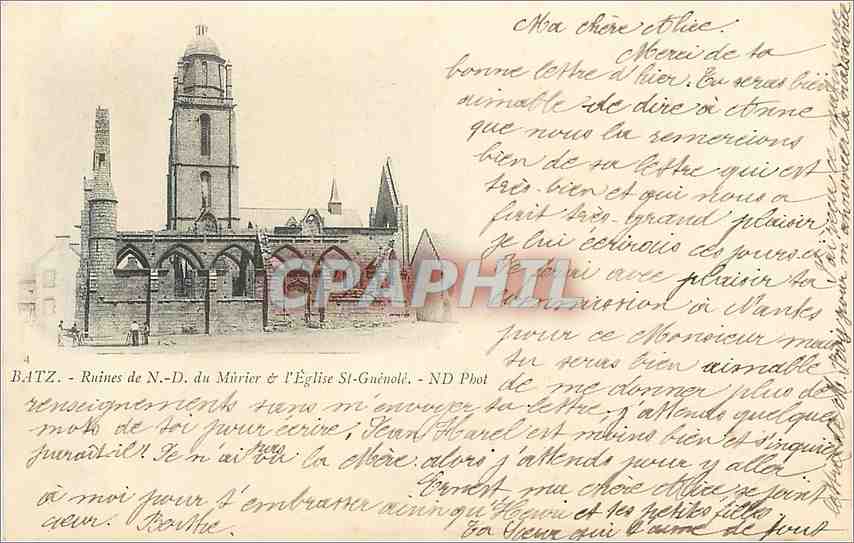 Ma chère Alice.
Merci de ta
bonne lettre d'hier. Tu seras bien
aimable de dire à Anne
que nous la remercions
bien de sa lettre qui est
très-bien et qui nous a
fait très-grand plaisir,
je lui écrirais ces jours-ci
Je ferai avec plaisir ta
commission à Nantes
pour ce Monsieur mais
tu seras bien aimable
de me donner plus de
renseignements sans m'envoyer ta lettre, j'attends quelques
mots de toi pour écrire, Jean Harel est moins bien et s'inquiète
paraît-il? Je n'ai pas vu la Mère alors j'attends pour y aller
Ernest ma chère Alice se joint
à moi pour t'embrasser ainsi qu'Henri et tes petites filles
Ta Sœur qui t'aime de tout
cœur. Berthe.
j'ai reçu ce matin une
lettre de M. pour m'annoncer la naissance
CPAPHIL
4
BATZ. - Ruines de N.-D. du Mûrier & l'Église St-Guénolé. - ND Phot